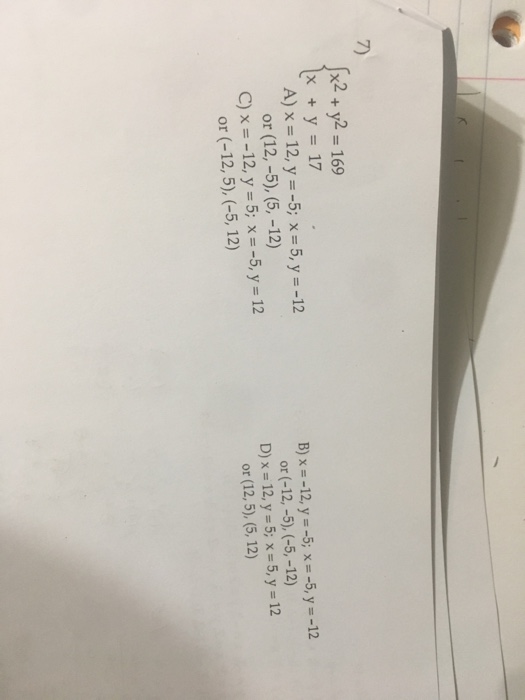 7)
{x2 + y2 = 169
x + y = 17
A) x = 12, y = -5; x = 5, y = -12
or (12, -5), (5, -12)
B) x = -12, y = -5; x = -5, y = -12
or (-12, -5), (-5, -12)
C) x = -12, y = 5; x = -5, y = 12
or (-12, 5), (-5, 12)
D) x = 12, y = 5; x = 5, y = 12
or (12, 5), (5, 12)